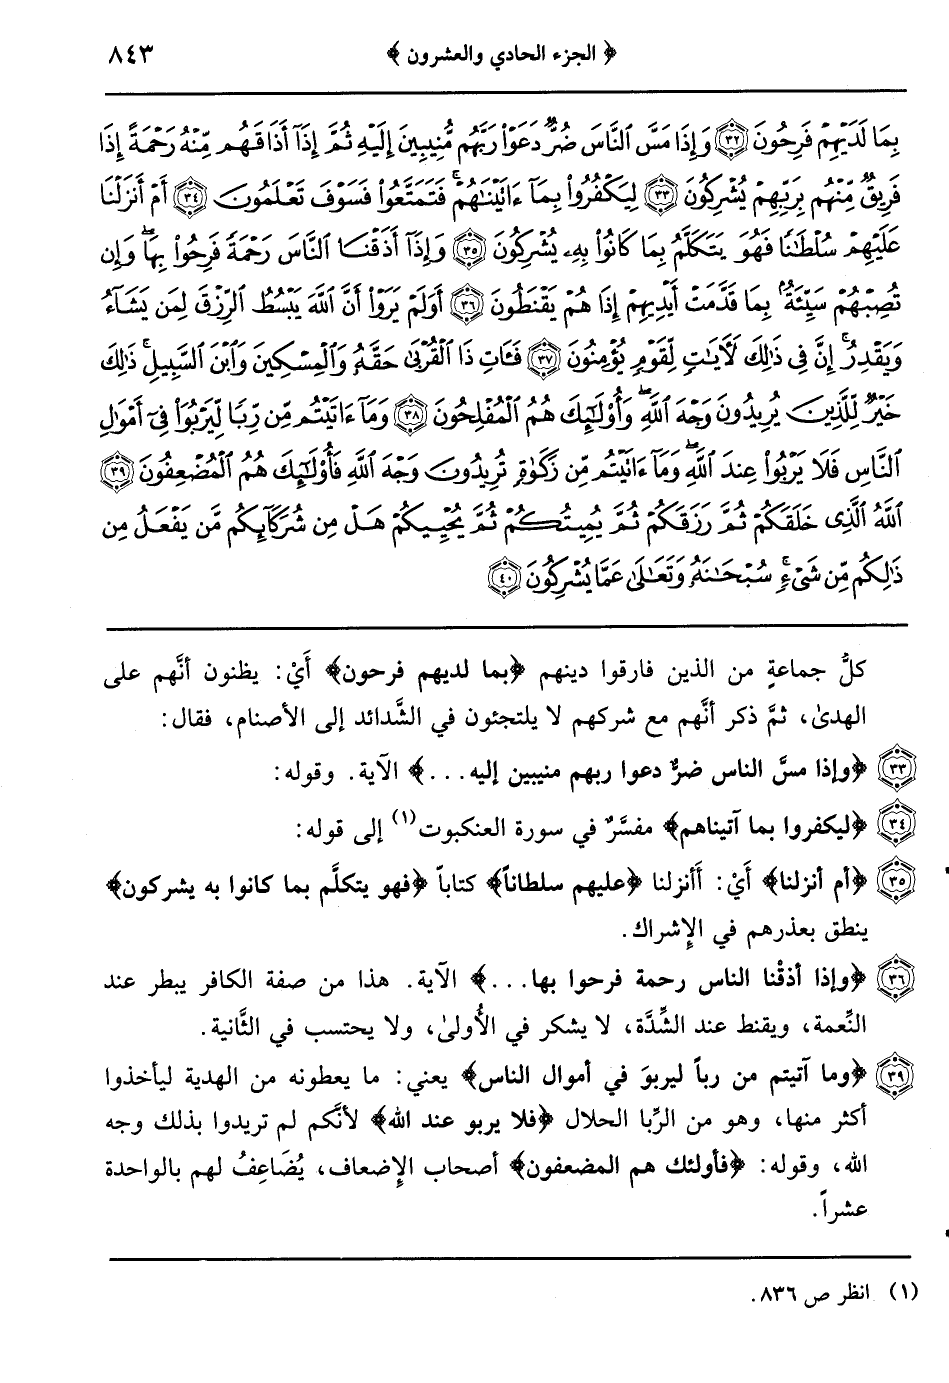 ﴿ الجزء الحادي والعشرون ﴾ ٨٤٣
بِمَا لَدَيْهِمْ فَرِحُونَ ٣٢ وَإِذَا مَسَّ النَّاسَ ضُرٌّ دَعَوْا۟ رَبَّهُم مُّنِيبِينَ إِلَيْهِ ثُمَّ إِذَآ أَذَاقَهُم مِّنْهُ رَحْمَةً إِذَا
فَرِيقٌ مِّنْهُم بِرَبِّهِمْ يُشْرِكُونَ ٣٣ لِيَكْفُرُوا۟ بِمَآ ءَاتَيْنَٰهُمْ ۚ فَتَمَتَّعُوا۟ فَسَوْفَ تَعْلَمُونَ ٣٤ أَمْ أَنزَلْنَا
عَلَيْهِمْ سُلْطَٰنًا فَهُوَ يَتَكَلَّمُ بِمَا كَانُوا۟ بِهِۦ يُشْرِكُونَ ٣٥ وَإِذَآ أَذَقْنَا النَّاسَ رَحْمَةً فَرِحُوا۟ بِهَا ۖ وَإِن
تُصِبْهُمْ سَيِّئَةٌۢ بِمَا قَدَّمَتْ أَيْدِيهِمْ إِذَا هُمْ يَقْنَطُونَ ٣٦ أَوَلَمْ يَرَوْا۟ أَنَّ اللَّهَ يَبْسُطُ الرِّزْقَ لِمَن يَشَآءُ
وَيَقْدِرُ ۚ إِنَّ فِى ذَٰلِكَ لَءَايَٰتٍ لِّقَوْمٍ يُؤْمِنُونَ ٣٧ فَـَٔاتِ ذَا الْقُرْبَىٰ حَقَّهُۥ وَالْمِسْكِينَ وَابْنَ السَّبِيلِ ۚ ذَٰلِكَ
خَيْرٌ لِّلَّذِينَ يُرِيدُونَ وَجْهَ اللَّهِ ۖ وَأُو۟لَٰٓئِكَ هُمُ الْمُفْلِحُونَ ٣٨ وَمَآ ءَاتَيْتُم مِّن رِّبًا لِّيَرْبُوَا۟ فِىٓ أَمْوَٰلِ
النَّاسِ فَلَا يَرْبُوا۟ عِندَ اللَّهِ ۖ وَمَآ ءَاتَيْتُم مِّن زَكَوٰةٍ تُرِيدُونَ وَجْهَ اللَّهِ فَأُو۟لَٰٓئِكَ هُمُ الْمُضْعِفُونَ ٣٩
اللَّهُ الَّذِى خَلَقَكُمْ ثُمَّ رَزَقَكُمْ ثُمَّ يُمِيتُكُمْ ثُمَّ يُحْيِيكُمْ هَلْ مِن شُرَكَآئِكُم مَّن يَفْعَلُ مِن
ذَٰلِكُم مِّن شَىْءٍ ۚ سُبْحَٰنَهُۥ وَتَعَٰلَىٰ عَمَّا يُشْرِكُونَ ٤٠
كلُّ جماعةٍ من الذين فارقوا دينهم ﴿بما لديهم فرحون﴾ أَيْ: يظنون أنَّهم على
الهدىٰ، ثمَّ ذكر أنَّهم مع شركهم لا يلتجئون في الشَّدائد إلى الأصنام، فقال:
٣٣ ﴿وإذا مسَّ الناس ضرٌّ دعوا ربهم منيبين إليه...﴾ الآية. وقوله:
٣٤ ﴿ليكفروا بما آتيناهم﴾ مفسَّرٌ في سورة العنكبوت(١) إلى قوله:
٣٥ ﴿أم أنزلنا﴾ أَيْ: أَأنزلنا ﴿عليهم سلطاناً﴾ كتاباً ﴿فهو يتكلَّم بما كانوا به يشركون﴾
ينطق بعذرهم في الإِشراك.
٣٦ ﴿وإذا أذقْنا الناس رحمة فرحوا بها...﴾ الآية. هذا من صفة الكافر يبطر عند
النِّعمة، ويقنط عند الشِّدَّة، لا يشكر في الأُولىٰ، ولا يحتسب في الثَّانية.
٣٩ ﴿وما آتيتم من رباً ليربوَ في أموال الناس﴾ يعني: ما يعطونه من الهدية ليأخذوا
أكثر منها، وهو من الرِّبا الحلال ﴿فلا يربو عند الله﴾ لأنَّكم لم تريدوا بذلك وجه
الله، وقوله: ﴿فأولئك هم المضعفون﴾ أصحاب الإِضعاف، يُضَاعِفُ لهم بالواحدة
عشراً.
(١) انظر ص ٨٣٦.